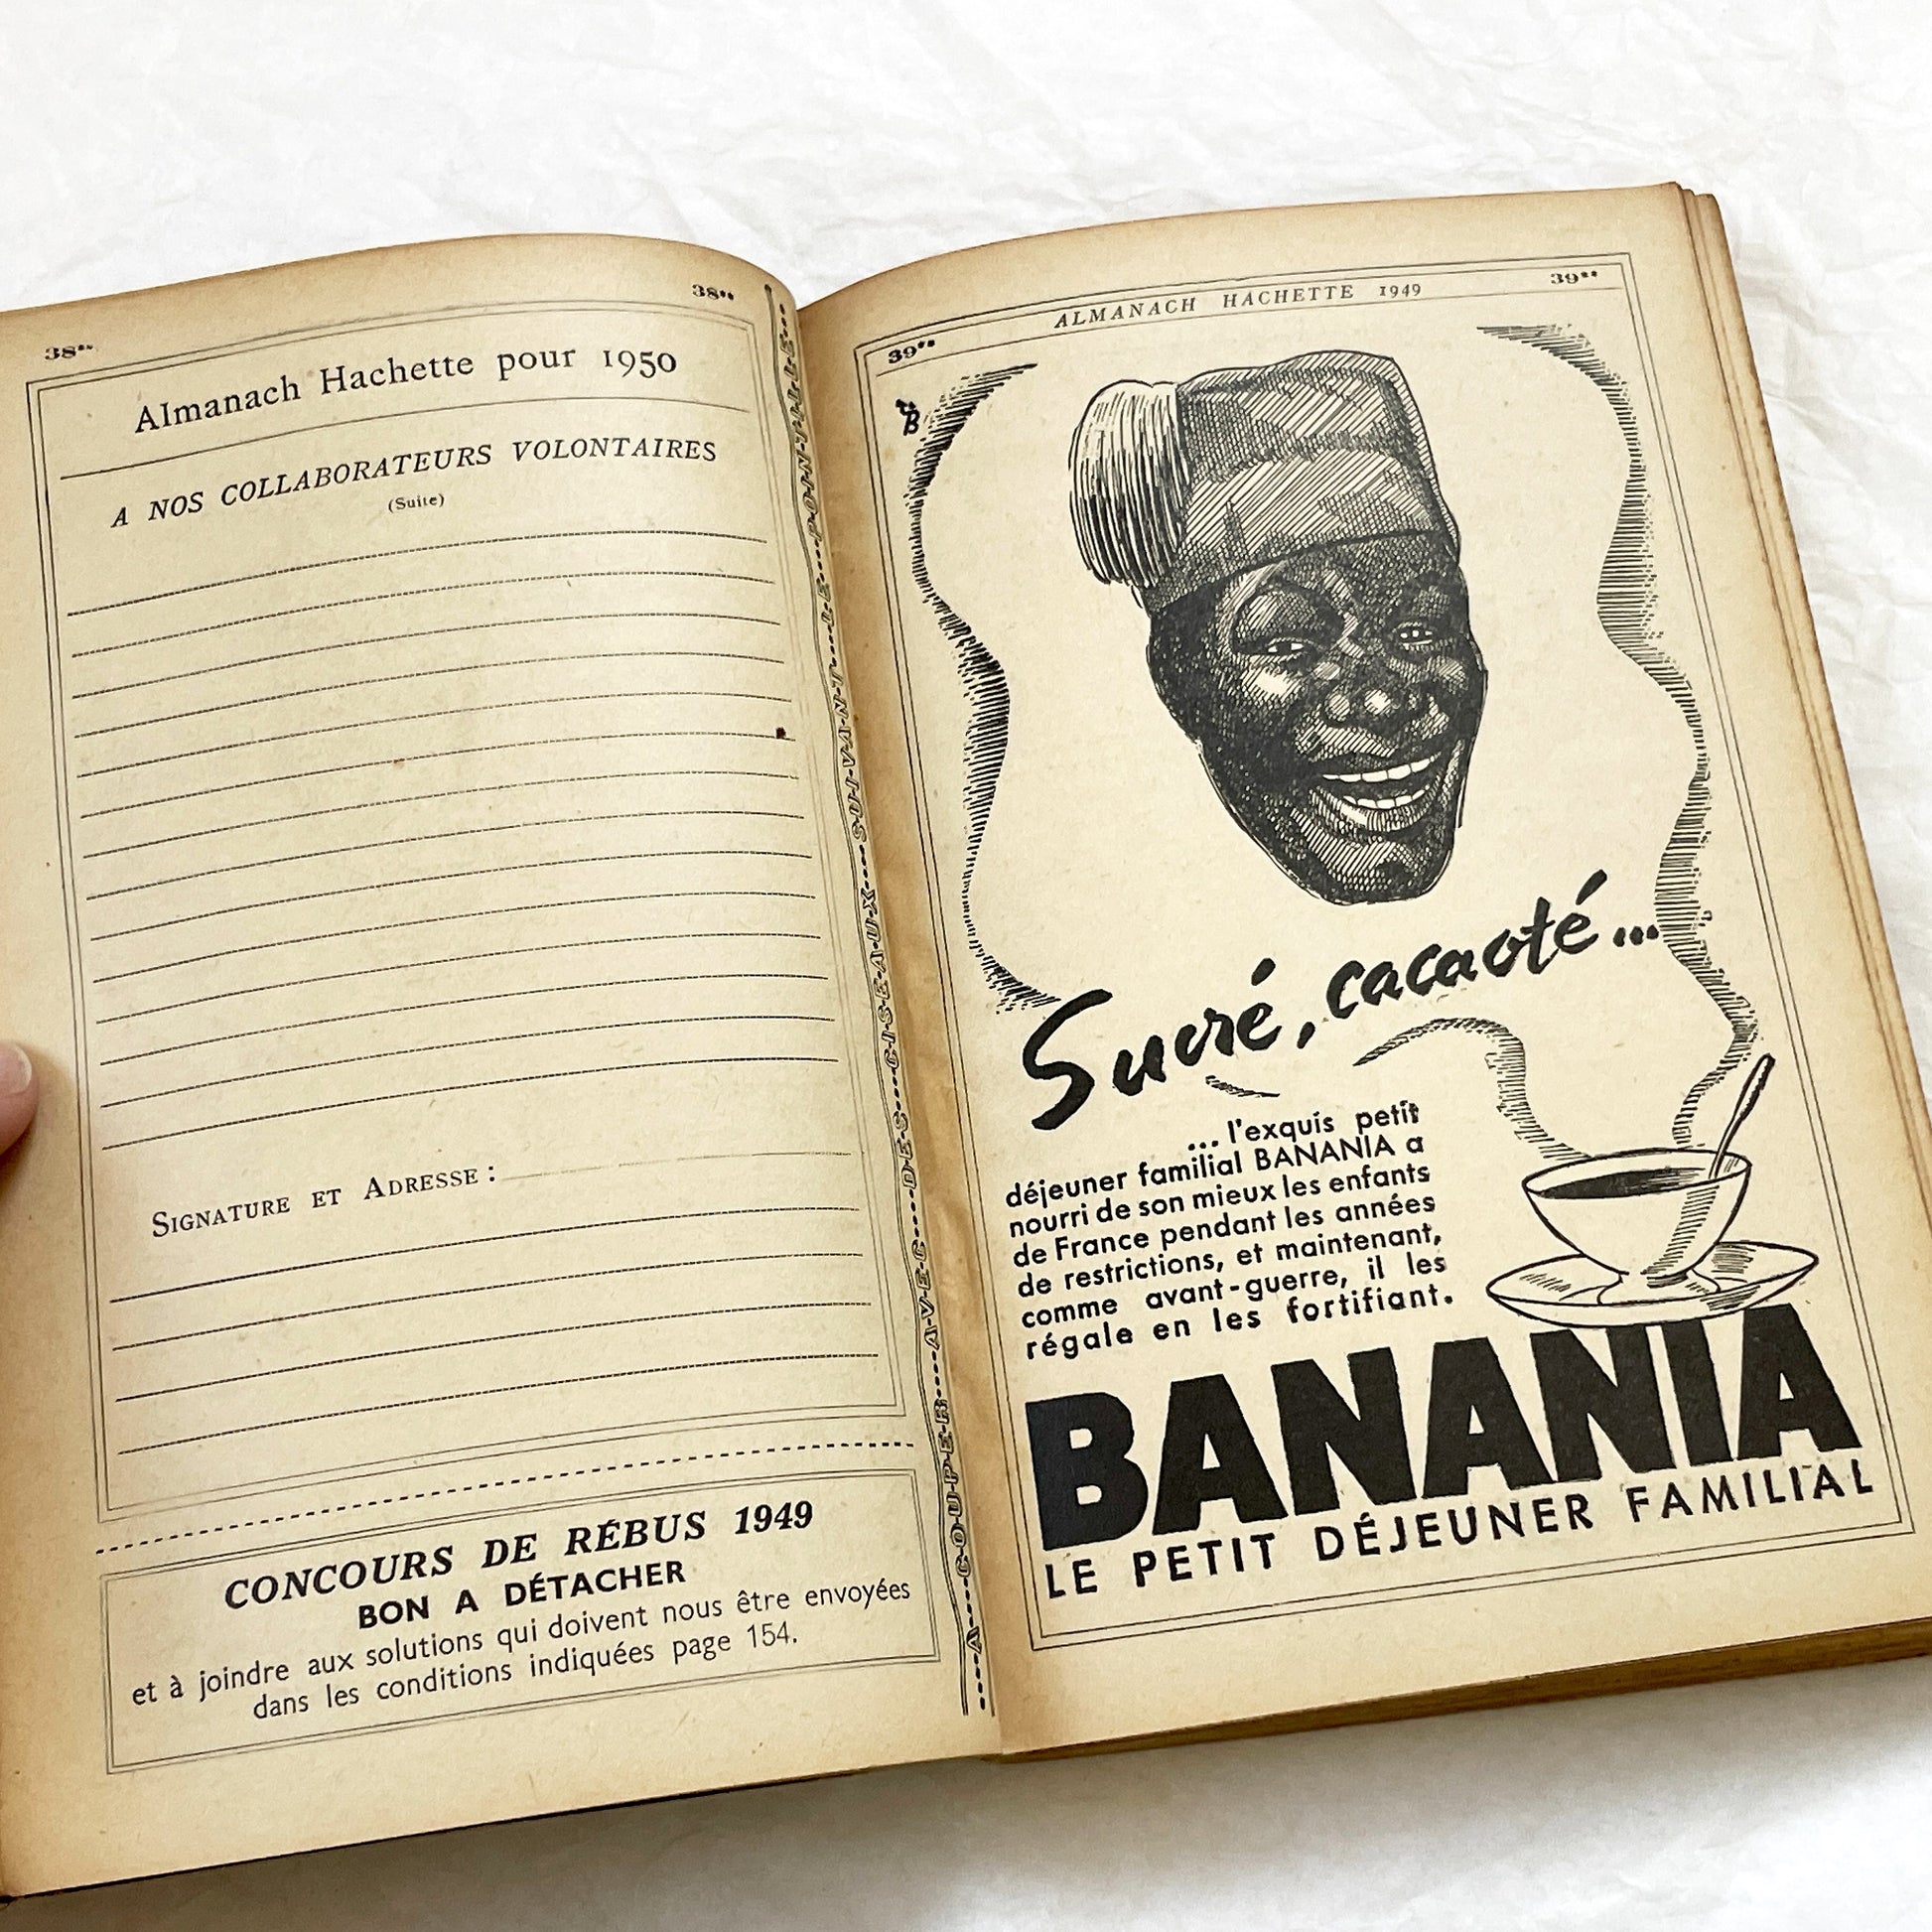 38**
38**
Almanach Hachette pour 1950
A NOS COLLABORATEURS VOLONTAIRES
(Suite)
SIGNATURE ET ADRESSE :
CONCOURS DE RÉBUS 1949
BON A DÉTACHER
et à joindre aux solutions qui doivent nous être envoyées
dans les conditions indiquées page 154.
A....COUPER....AVEC....DES....CISEAUX....SUIVANT...LE...POINTILLE...
39**
ALMANACH HACHETTE 1949
39**
Sucré, cacaoté...
... l'exquis petit
déjeuner familial BANANIA a
nourri de son mieux les enfants
de France pendant les années
de restrictions, et maintenant,
comme avant-guerre, il les
régale en les fortifiant.
BANANIA
LE PETIT DÉJEUNER FAMILIAL